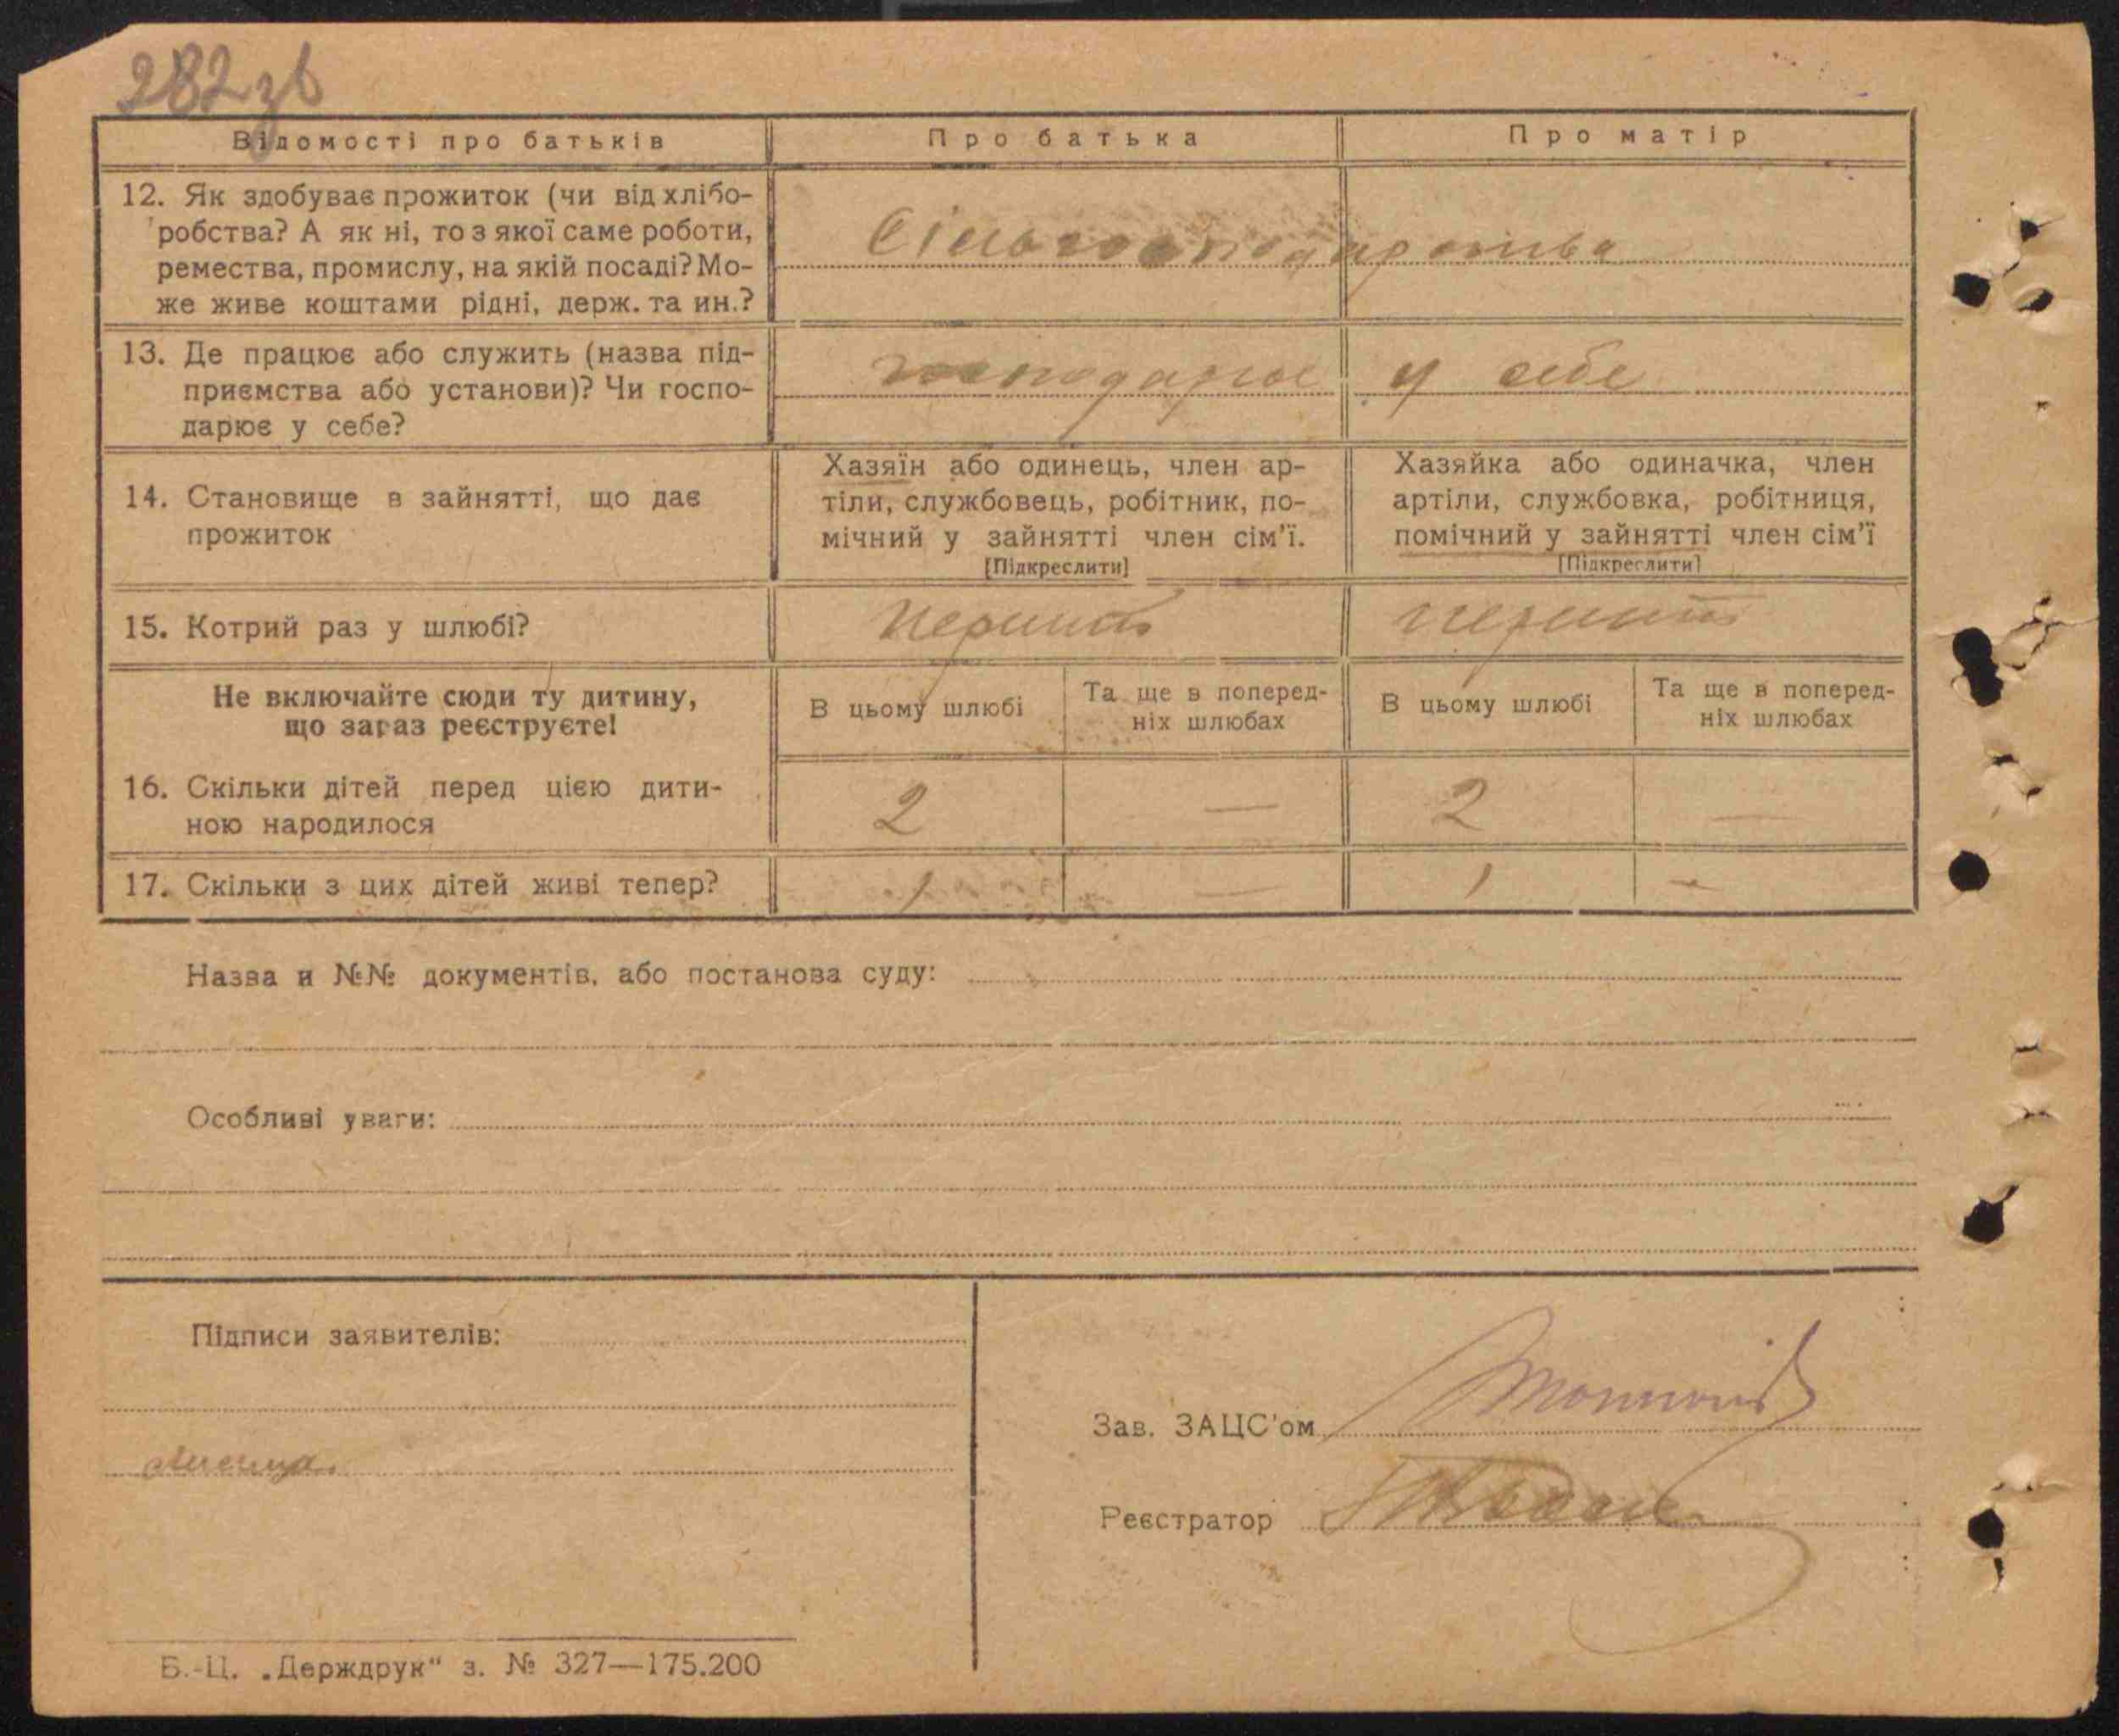 282зв
Відомості про батьків
Про батька
Про матір
12. Як здобуває прожиток (чи від хлібо-
робства? А як ні, то з якої саме роботи,
ремества, промислу, на якій посаді? Мо-
же живе коштами рідні, держ. та ин.?
Сільгосподарства
13. Де працює або служить (назва під-
приємства або установи)? Чи госпо-
дарює у себе?
господарює у себе
14. Становище в зайнятті, що дає
прожиток
Хазяїн або одинець, член ар-
тіли, службовець, робітник, по-
мічний у зайнятті член сім'ї.
[Підкреслити]
Хазяйка або одиначка, член
артіли, службовка, робітниця,
помічний у зайнятті член сім'ї
[Підкреслити]
15. Котрий раз у шлюбі?
перший
перший
Не включайте сюди ту дитину,
що зараз реєструєте!
В цьому шлюбі
Та ще в поперед-
ніх шлюбах
В цьому шлюбі
Та ще в поперед-
ніх шлюбах
16. Скільки дітей перед цією дити-
ною народилося
2 — 2 —
17. Скільки з цих дітей живі тепер?
1 — 1 —
Назва и №№ документів, або постанова суду:
Особливі уваги:
Підписи заявителів:
Зав. ЗАЦС'ом
Реєстратор
Б.-Ц. „Держдрук" з. № 327—175.200